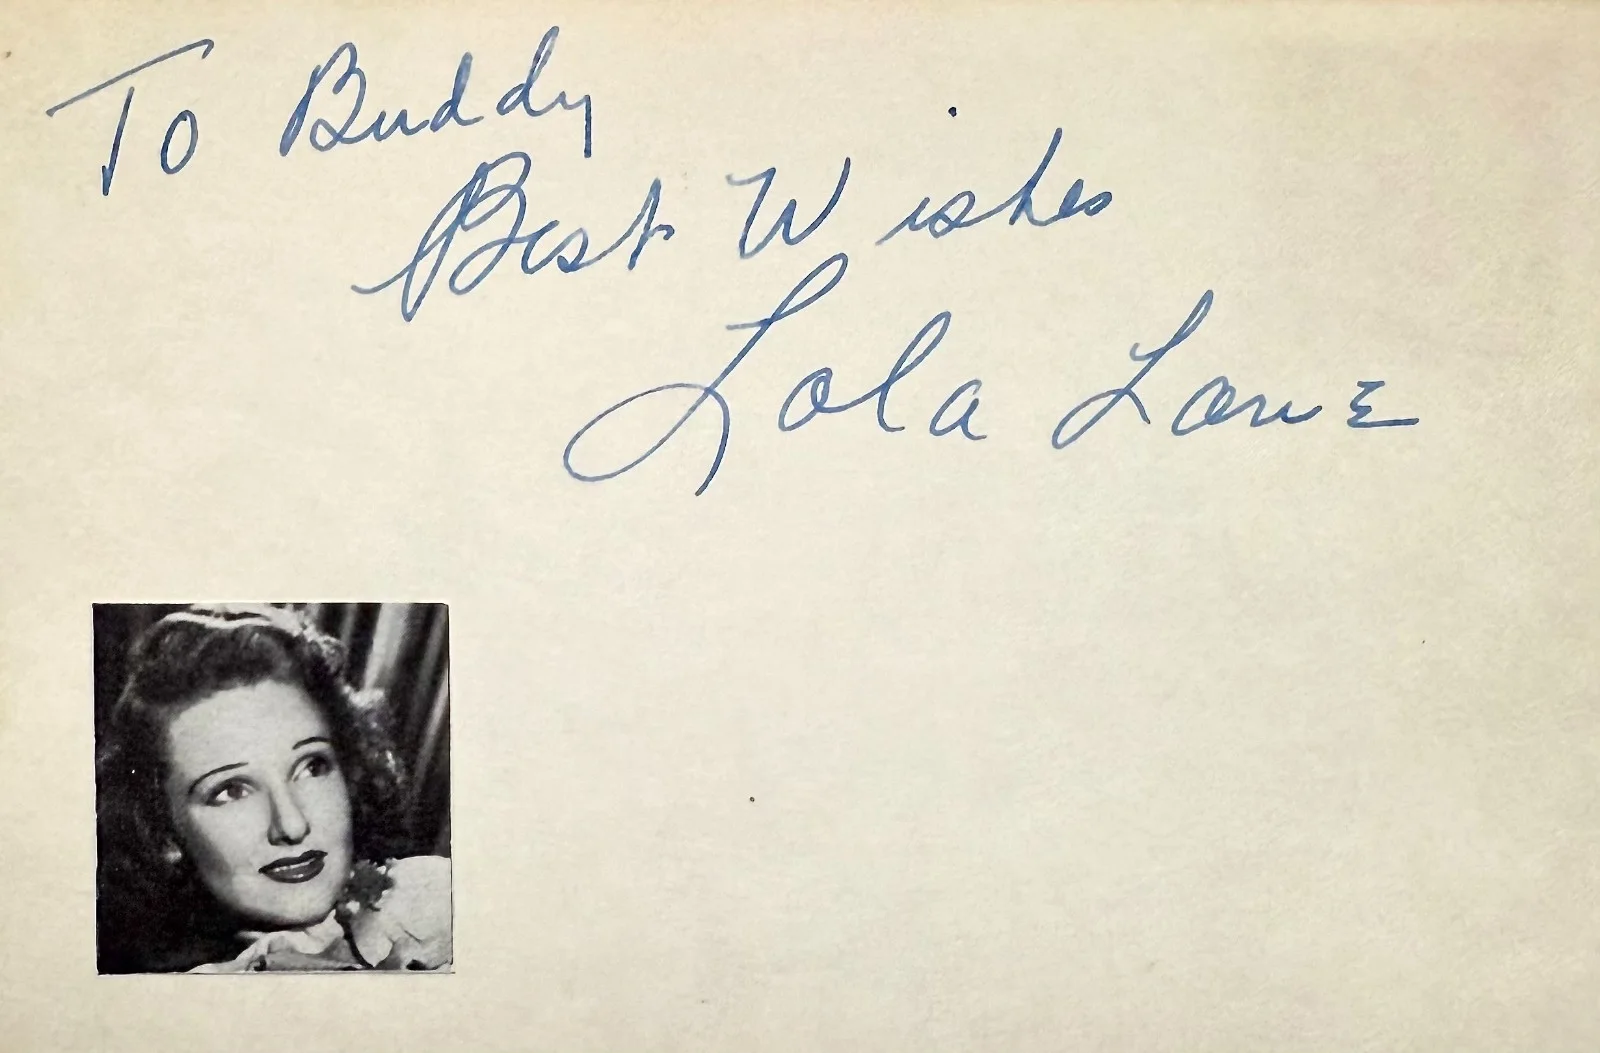 To Buddy
Best Wishes
Lola Lane